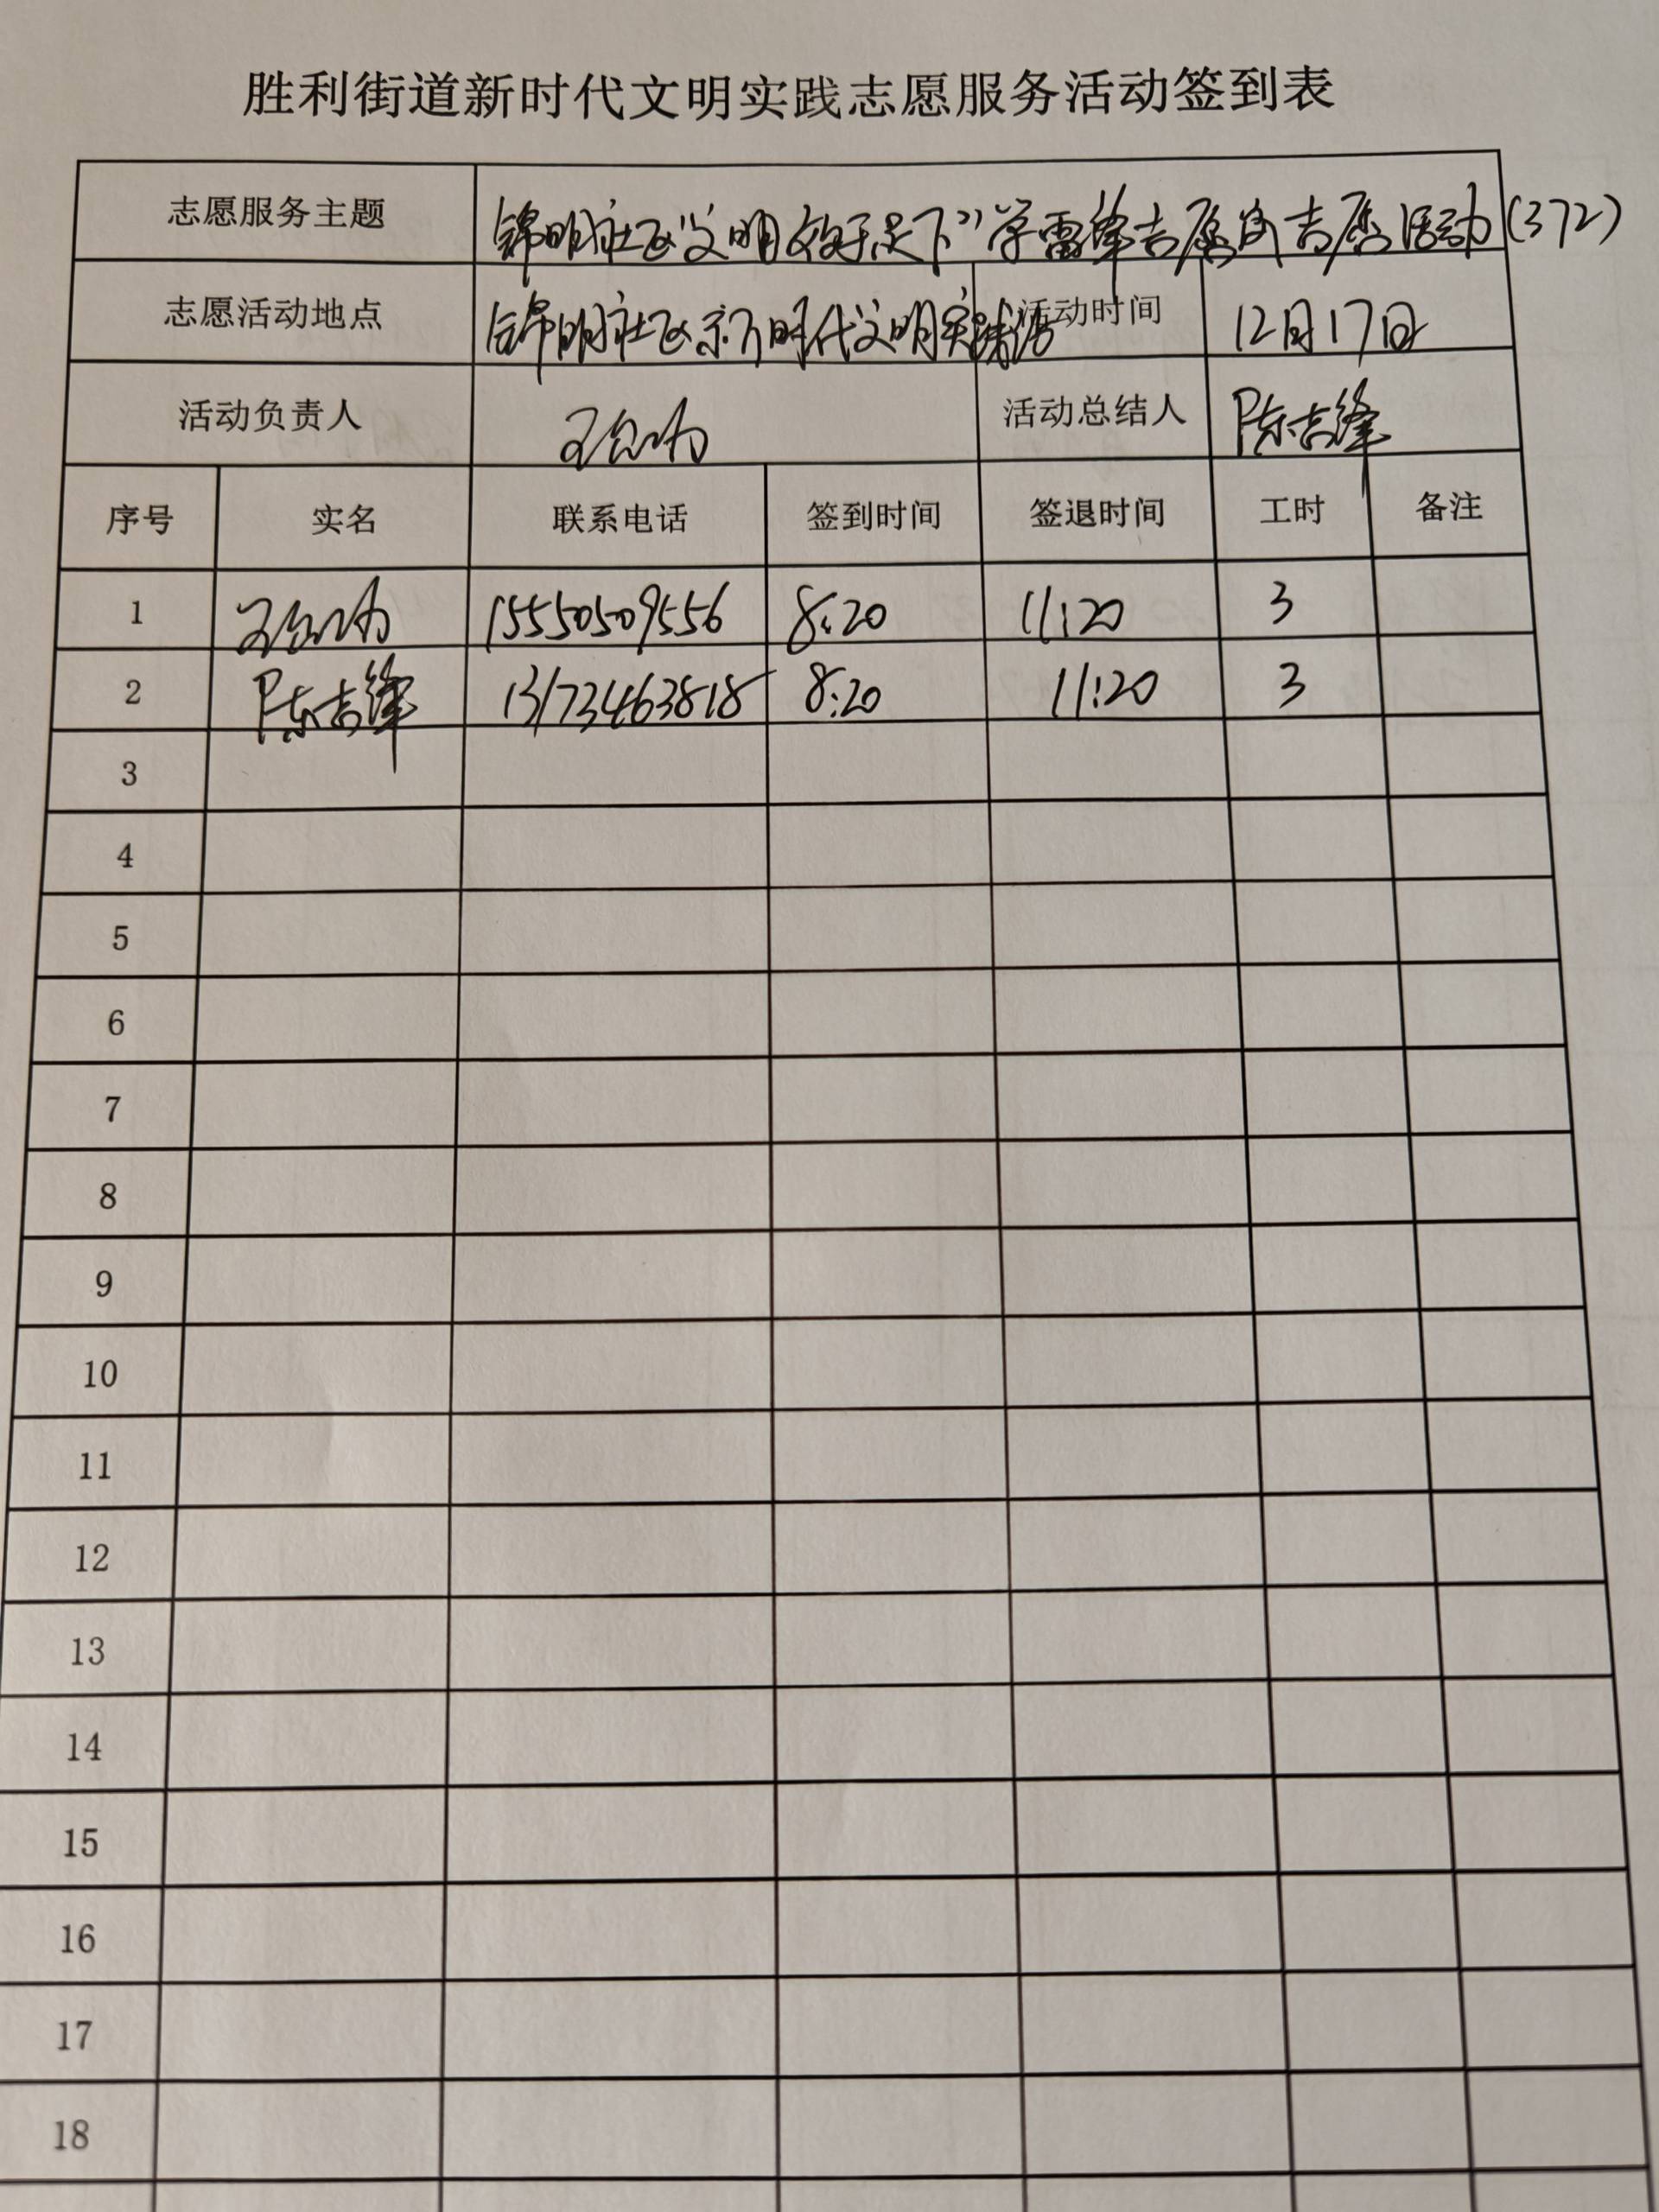 胜利街道新时代文明实践志愿服务活动签到表
志愿服务主题 锦明社区"文明始于足下"学雷锋志愿服务志愿活动(372)
志愿活动地点 锦明社区新时代文明实践站 活动时间 12月17日
活动负责人 活动总结人 陈志锋
序号 实名 联系电话 签到时间 签退时间 工时 备注
1 15550509556 8:20 11:20 3
2 陈志锋 13173463818 8:20 11:20 3
3
4
5
6
7
8
9
10
11
12
13
14
15
16
17
18